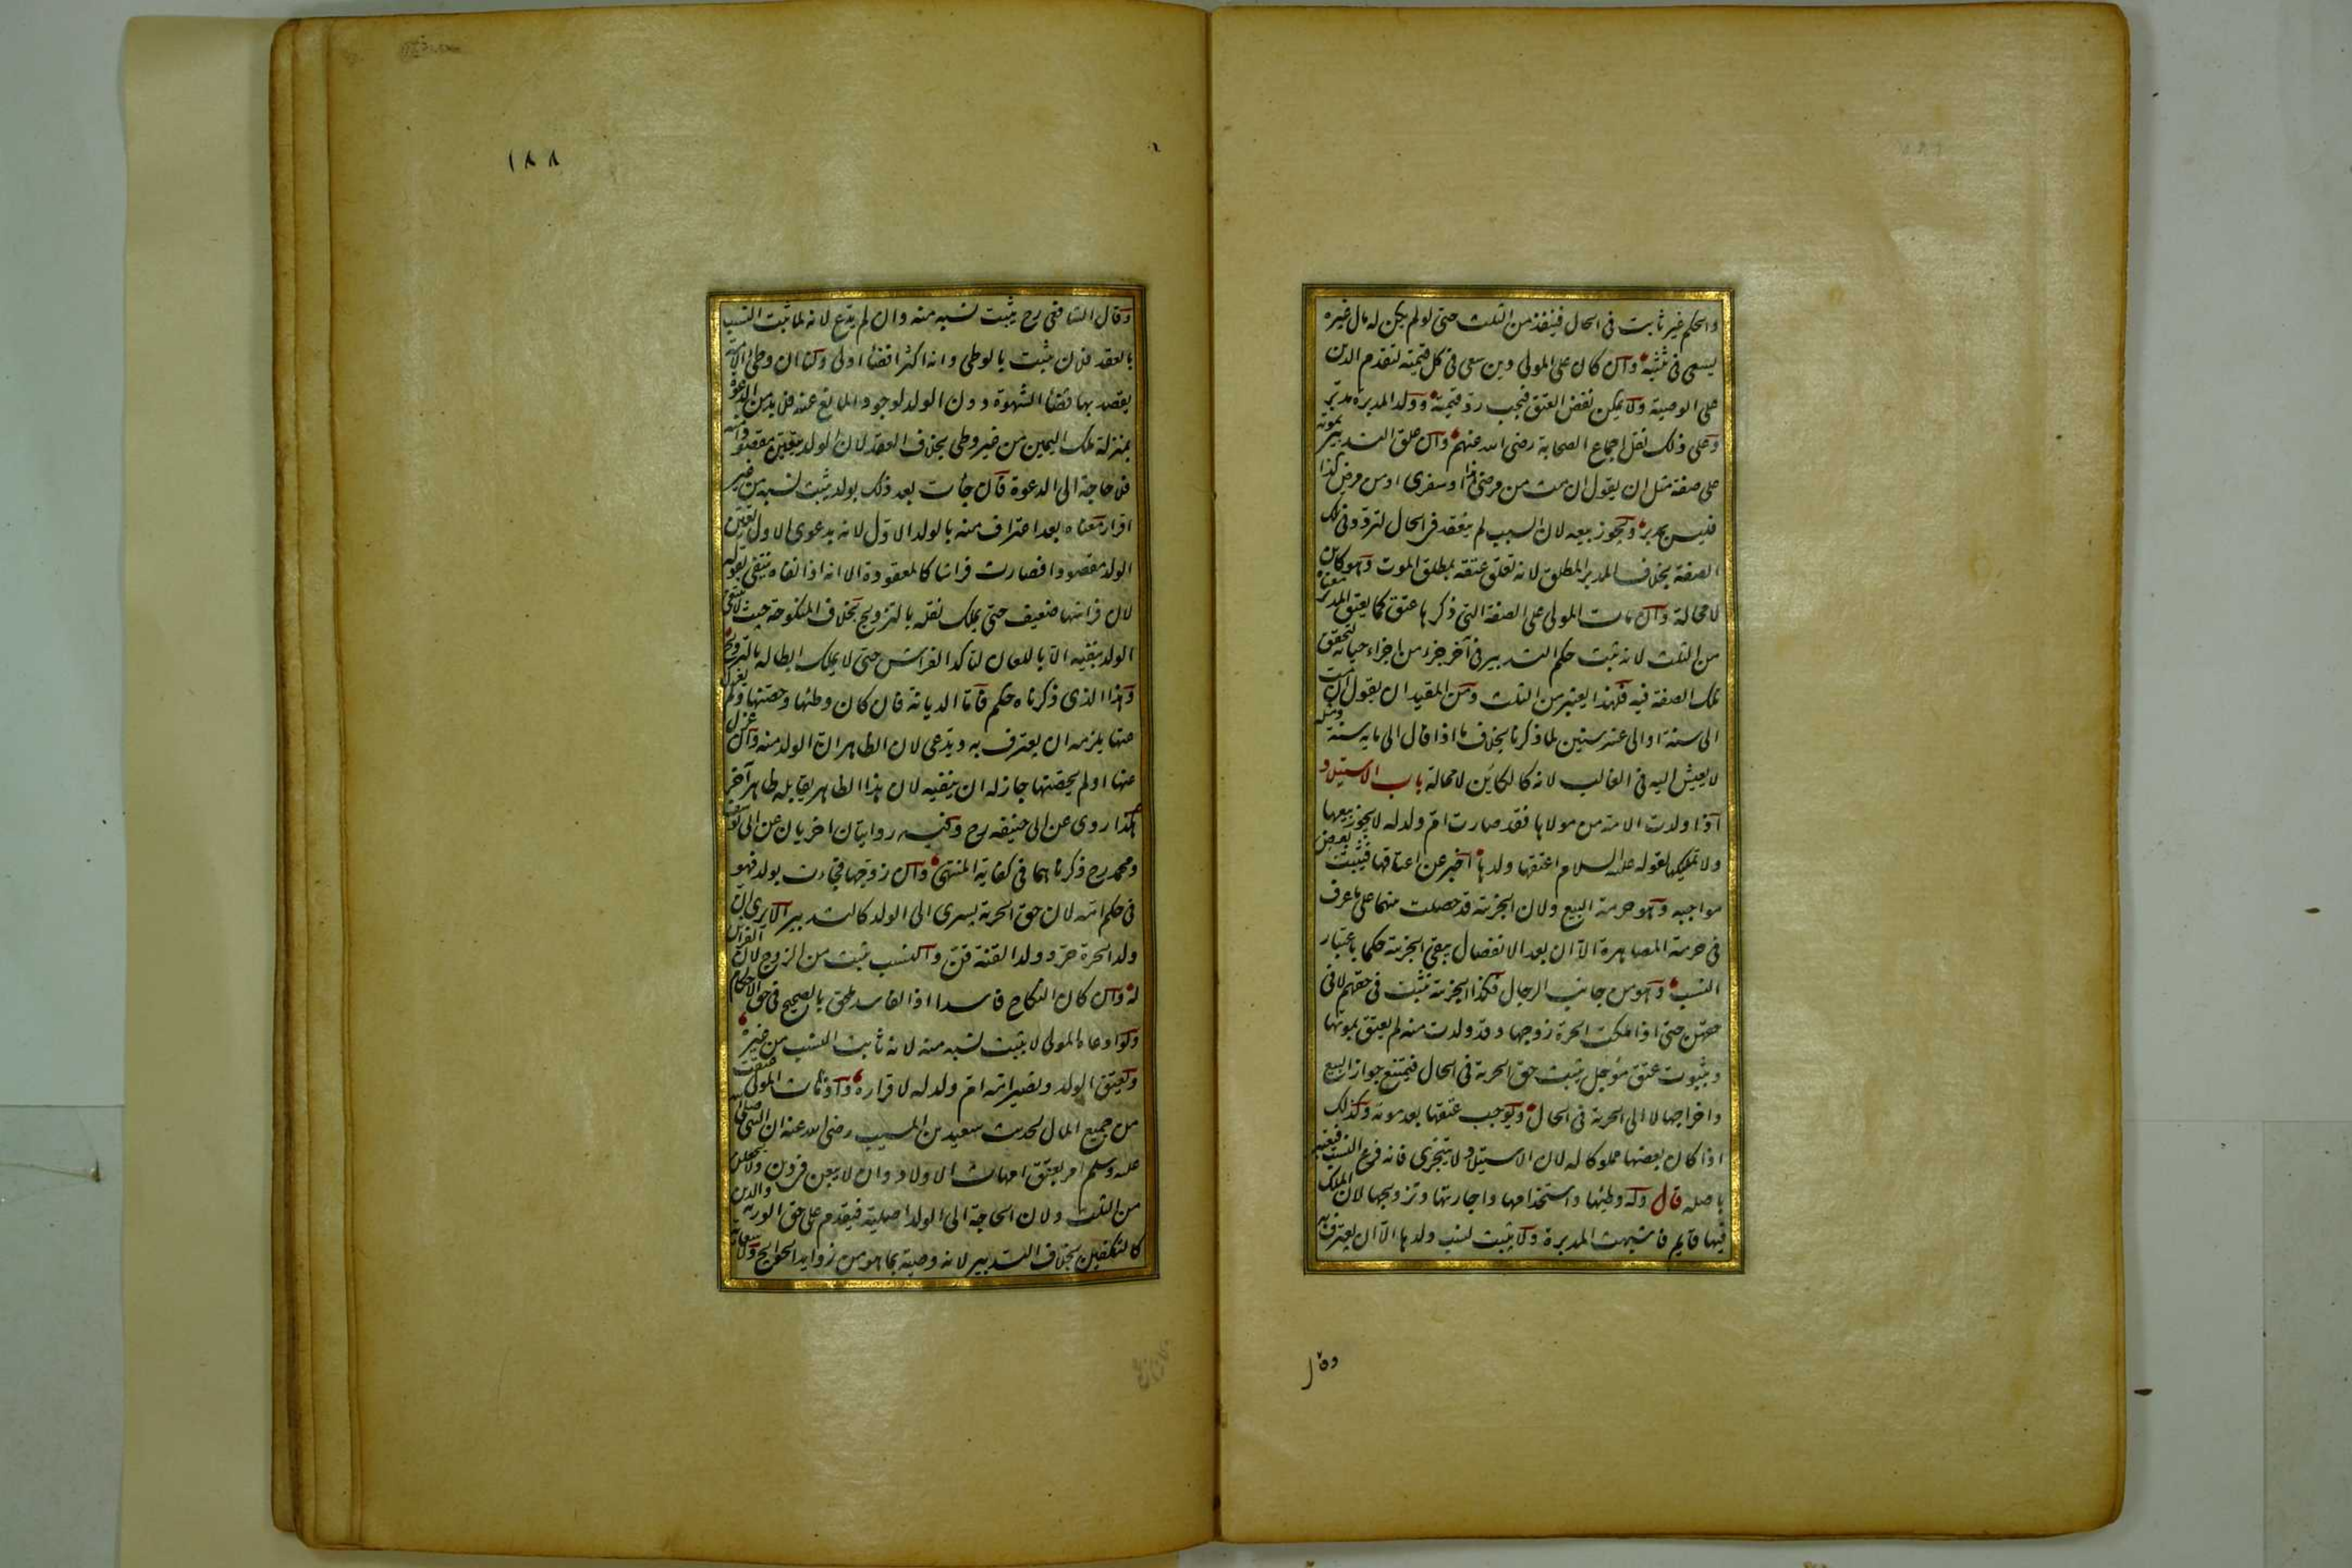 والحكم غير ثابت فى الحال فينفذ من الثلث حتى لو لم يكن له مال غيره
يسعى فى ثلثيه وان كان على المولى دين سعى فى كل قيمته لتقدم الدين
على الوصية ولا يمكن نقض العتق فيجب رد قيمته وولد المدبرة مدبر
وعلى ذلك نقل اجماع الصحابة رضى الله عنهم وان علق التدبير بموته
على صفة مثل ان يقول ان مت من مرضى هذا او سفرى او من مرض كذا
فليس بمدبر ويجوز بيعه لان السبب لم ينعقد فى الحال لتردد فى تلك
الصفة بخلاف المدبر المطلق لانه تعلق عتقه بمطلق الموت وهو كاين
لا محالة وان مات المولى على الصفة التى ذكرها عتق كما يعتق المدبر معناه
من الثلث لانه ثبت حكم التدبير فى آخر جزء من اجزاء حياته لتحقق
تلك الصفة فيه فلهذا يعتبر من الثلث ومن المقيد ان يقول ان مت
الى سنة او الى عشر سنين لما ذكرنا بخلاف ما اذا قال الى ماية سنة ومثله
لا يعيش اليه فى الغالب لانه كالكائن لا محالة باب الاستيلاد
اذا ولدت الامة من مولاها فقد صارت ام ولد له لا يجوز بيعها
ولا تمليكها لقوله عليه السلام اعتقها ولدها اخبر عن اعتاقها فيثبت بعض
مواجبه وهو حرمة البيع ولان الجزئية قد حصلت منهما على ما عرف
فى حرمة المصاهرة الا ان بعد الانفصال يبقى الجزئية حكما باعتبار
النسب وهو من جانب الرجال فكذا الجزئية تثبت فى حقهم لا فى
حقهن حتى اذا ملكت الحرة زوجها وقد ولدت منه لم يعتق بموتها
وبثبوت عتق مؤجل يثبت حق الحرية فى الحال فيمتنع جواز البيع
واخراجها لا الى الحرية فى الحال ويوجب عتقها بعد موته وكذلك
اذا كان بعضها مملوكا له لان الاستيلاد لا يتجزى فانه فرع النسب فيعتبر
باصله قال وله وطئها واستخدامها واجارتها وتزويجها لان الملك
فيها قايم فاشبهت المدبرة ولا يثبت نسب ولدها الا ان يعترف به
وقال
١٨٨
وقال الشافعى رح يثبت نسبه منه وان لم يدع لانه لما ثبت النسب
بالعقد فلان يثبت بالوطى وانه اكثر افضاء اولى ولنا ان وطى الامة
يقصد بها قضاء الشهوة دون الولد لوجود المانع عنه فلا بد من الدعوة
بمنزلة ملك اليمين من غير وطى بخلاف العقد لان الولد يتعين مقصودا منه
فلا حاجة الى الدعوة قال جاءت بعد ذلك بولد يثبت نسبه من غير
اقرار معناه بعد اعتراف منه بالولد الاول لانه بدعوى الاول تعين
الولد مقصودا فصارت فراشا كالمعقودة الا انه اذا نفاه ينتفى بقوله
لان فراشها ضعيف حتى يملك نقله بالتزويج بخلاف المنكوحة حيث لا ينتفى
الولد بنفيه الا باللعان لتاكد الفراش حتى لا يملك ابطاله بالتزويج
وهذا الذى ذكرناه حكم فاما الديانة فان كان وطئها وحصنها ولم يعزل
عنها يلزمه ان يعترف به ويدعى لان الظاهر ان الولد منه وان عزل
عنها او لم يحصنها جاز له ان ينفيه لان هذا الظاهر يقابله ظاهر آخر
هكذا روى عن ابى حنيفه رح وفيه روايتان اخريان عن ابى يوسف
ومحمد رح ذكرناهما فى كفاية المنتهى وان زوجها فجاءت بولد فهو
فى حكم امه لان حق الحرية يسرى الى الولد كالتدبير الا يرى ان
ولد الحرة حر وولد القنة قن والنسب يثبت من الزوج لان الفراش
له وان كان النكاح فاسدا اذ الفاسد ملحق بالصحيح فى حق الاحكام
ولو ادعاه المولى لا يثبت نسبه منه لانه ثابت النسب من غيره
ويعتق الولد وتصير امه ام ولد له لاقراره واذا مات المولى عتقت
من جميع المال لحديث سعيد بن المسيب رضى الله عنه ان النبى صلى الله
عليه وسلم امر بعتق امهات الاولاد وان لا يبعن فى دين ولا يجعلن
من الثلث ولان الحاجة الى الولد اصلية فيقدم على حق الورثة والدين
كالتكفين بخلاف التدبير لانه وصية بما هو من زوايد الحوايج ولا سعاية